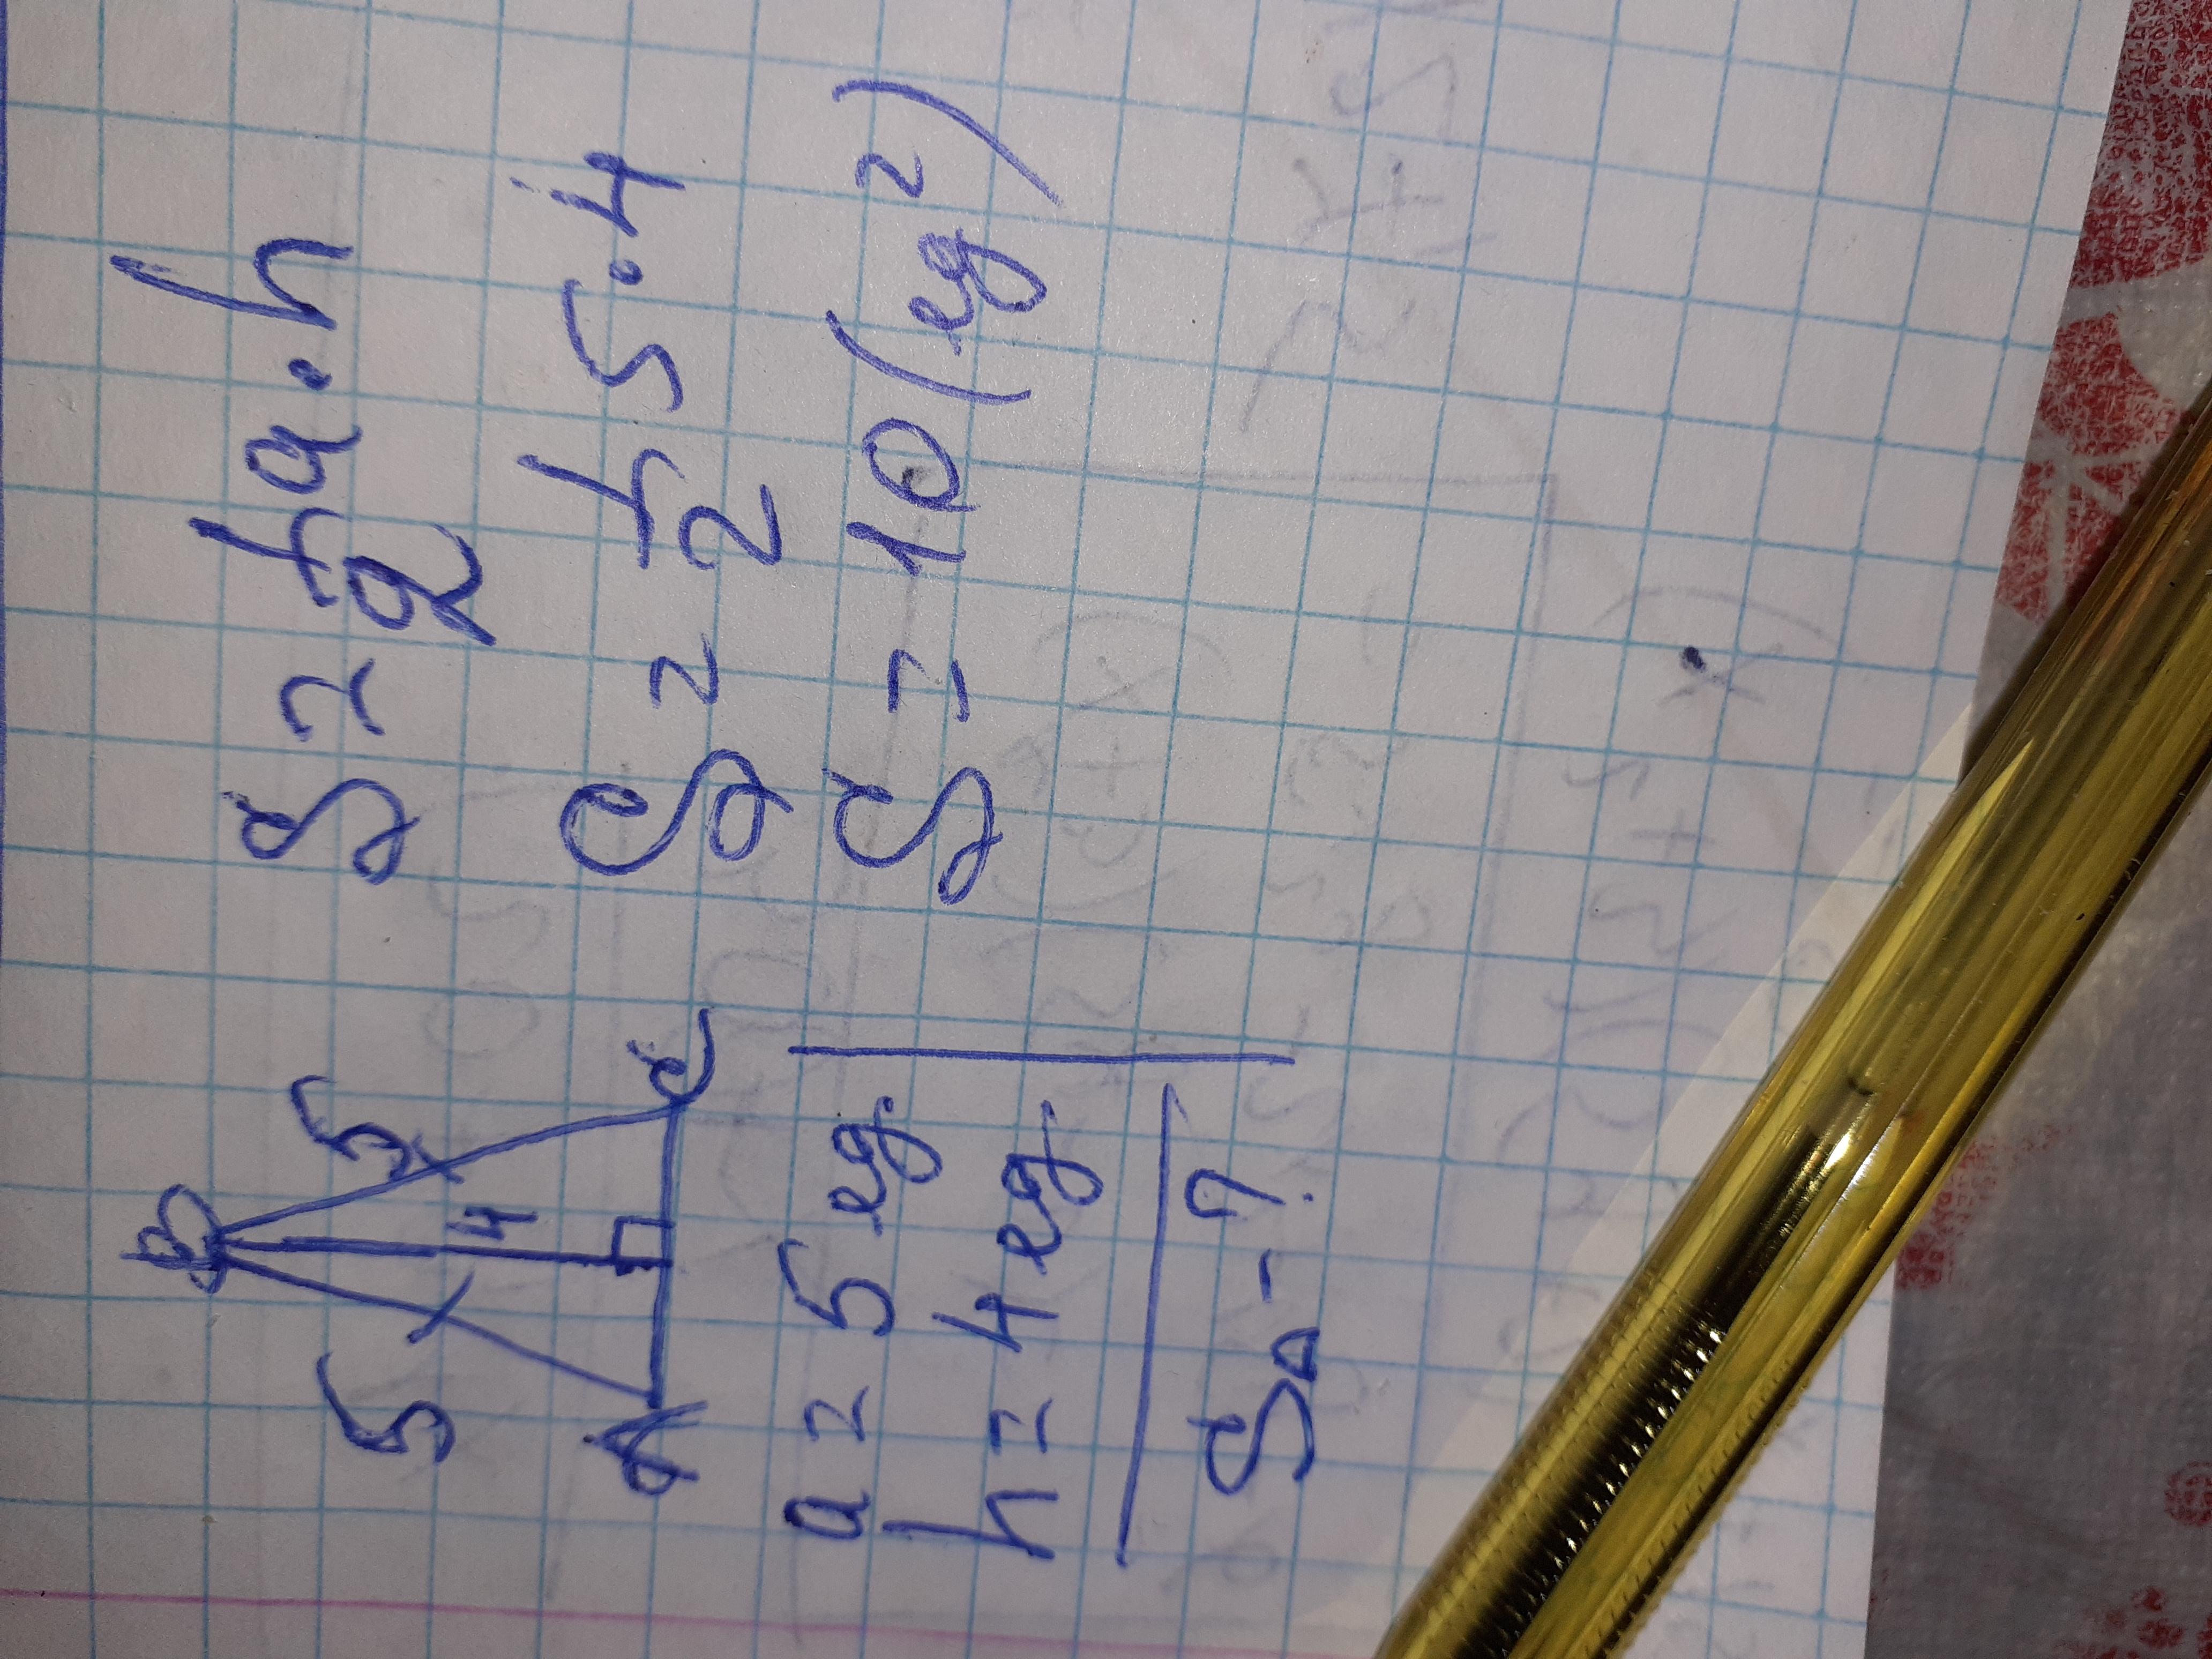 B
5 5
4
A C
a = 5 ед
h = 4 ед
S△ - ?
S = 1/2 a · h
S = 1/2 5 · 4
S = 10 (ед²)